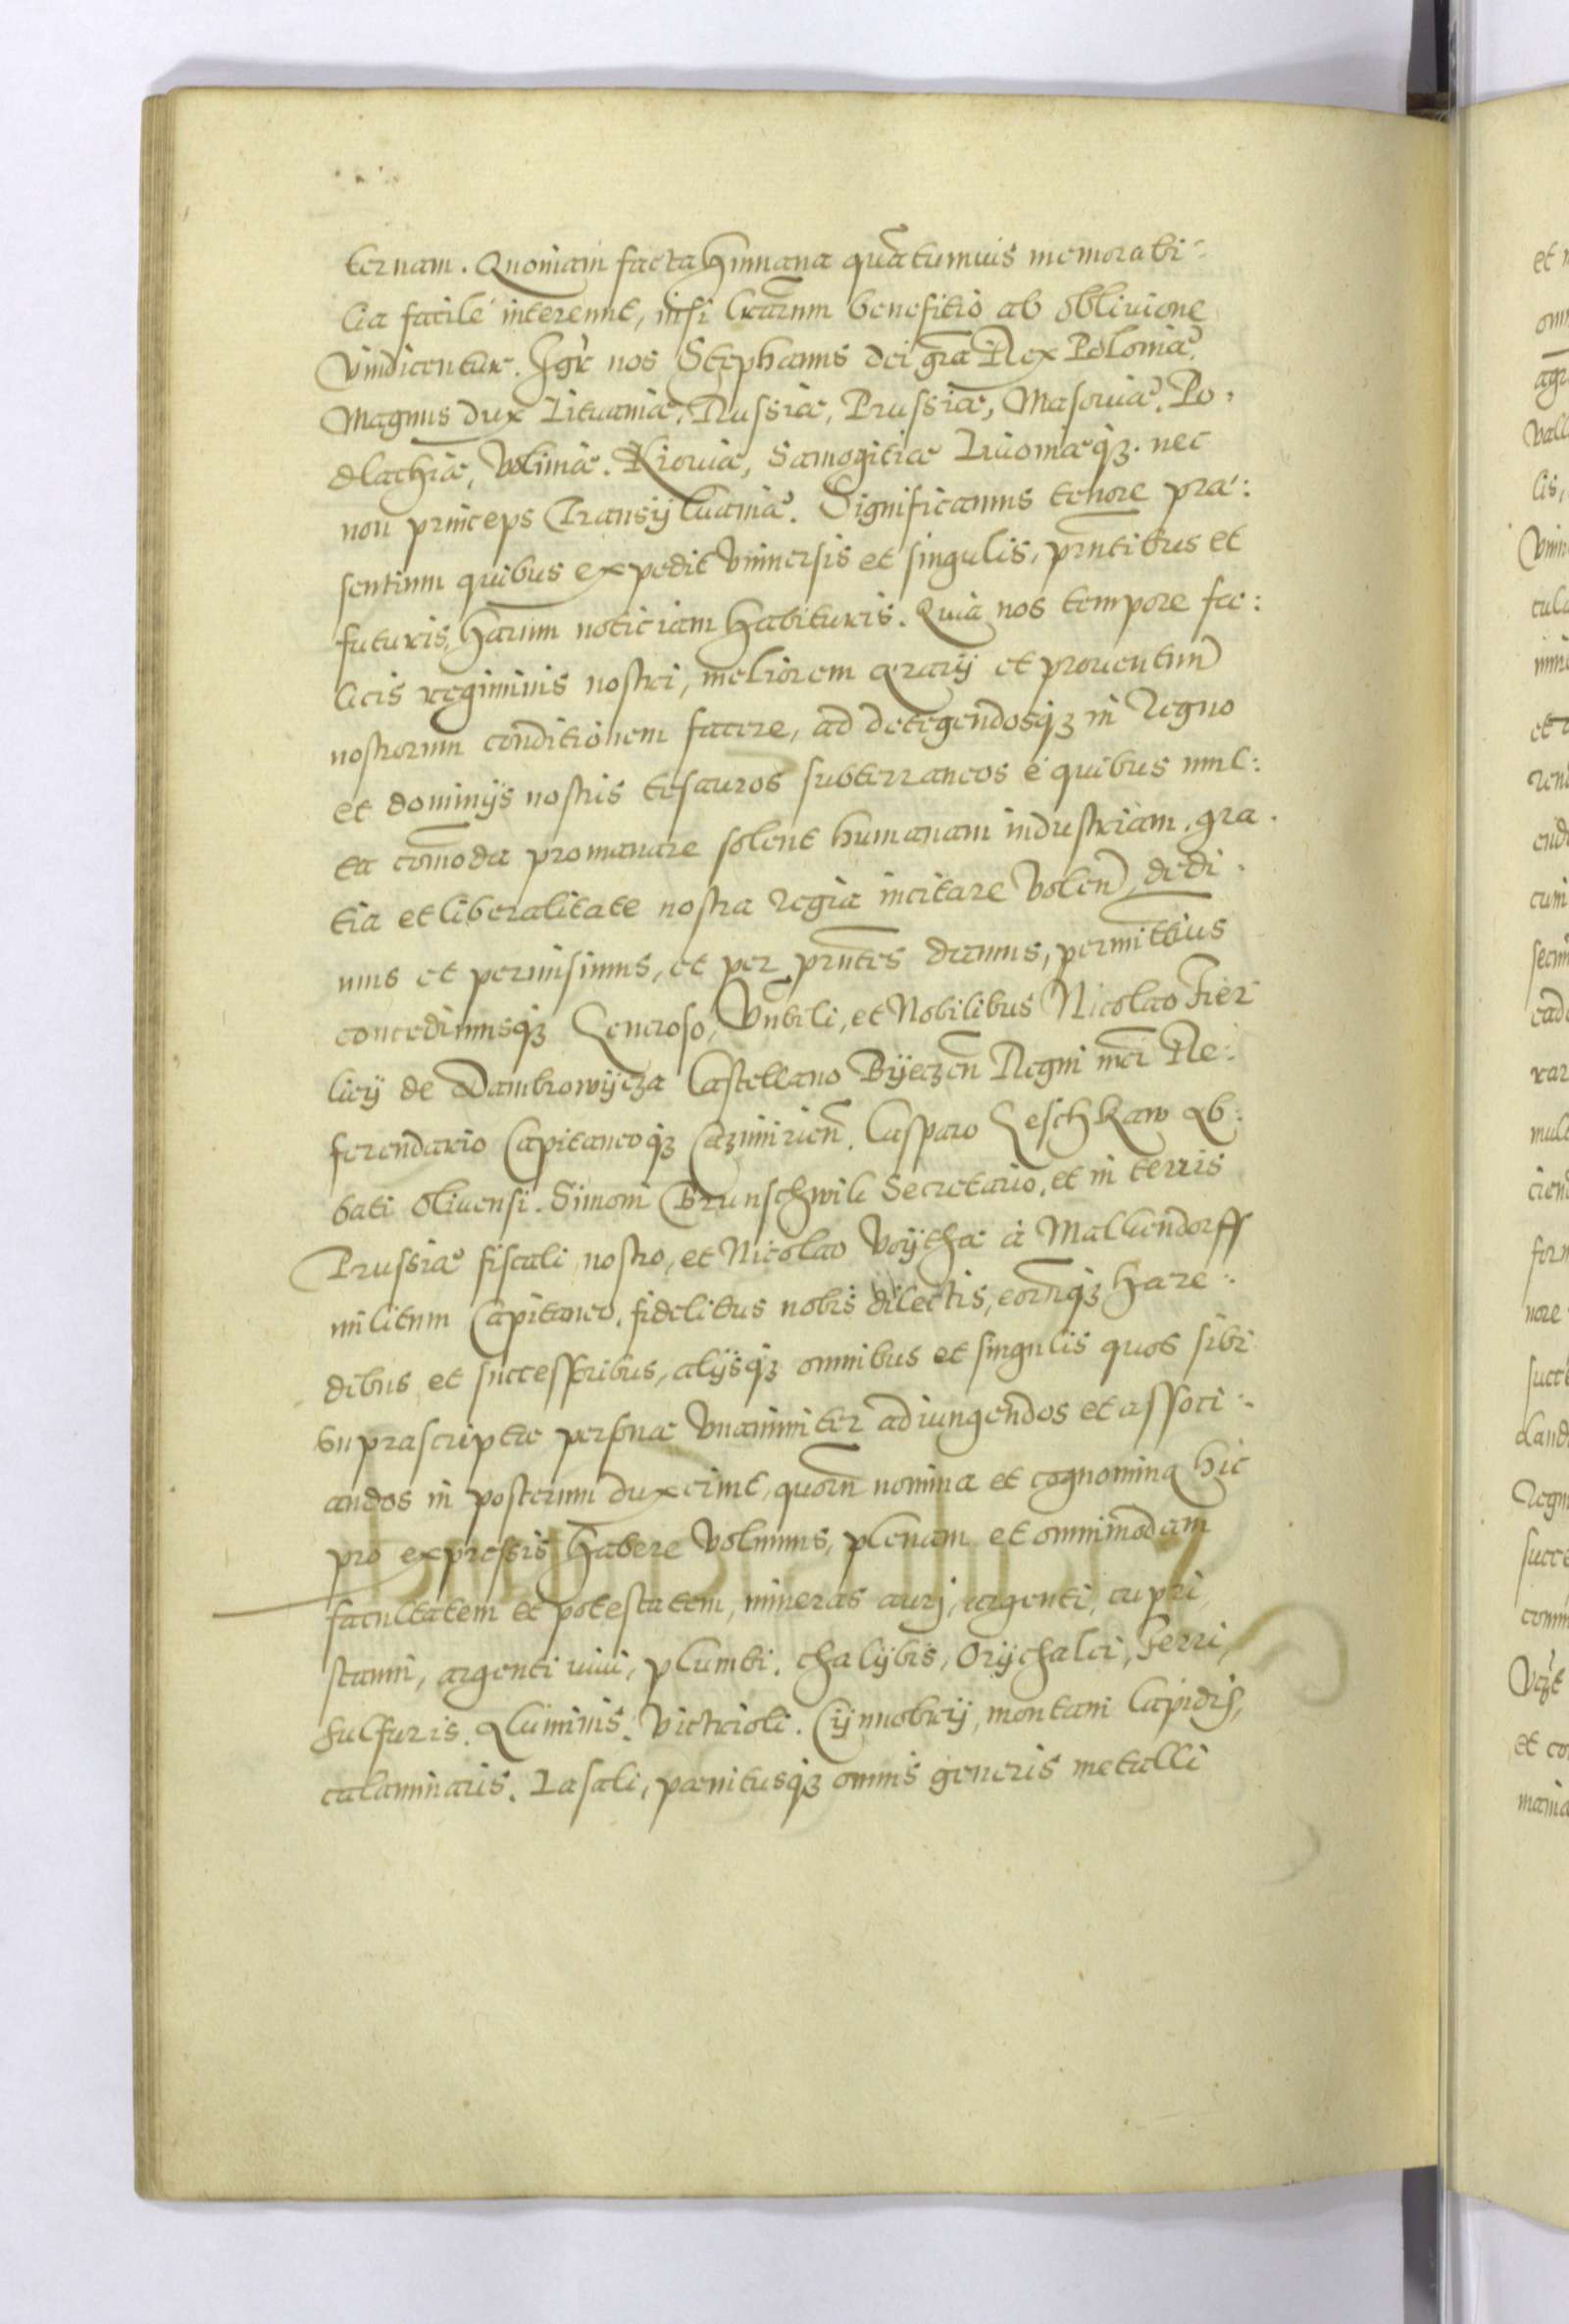 ternam. Quoniam facta humana quãtumuis memorabi:
lia facilé intereunt, nisi lrarum benefitio ab obliuione
vindicentur. Igr nos Stephanus dei gra Rex Poloniæ,
Magnus dux Lituaniæ, Russiæ, Prussiæ, Masouiæ, Po:
dlachiæ, Voliniæ, Kiouiæ, Samogitiæ Liuoniæq3. nec
non princeps Transÿluaniæ. Significamus tenore præ:
sentium quibus expedit vniuersis et singulis, prntibus et
futuris, harum noticiam habituris. Quia nos tempore fæ:
licis regiminis nostri, meliorem ærarÿ et prouentuu
nostrorum conditionem facere, ad detegendosq3 in Regno
et dominÿs nostris tesauros subterraneos é quibus mul:
ta comoda promanare solent humanam industriam, gra
tia et liberalitate nostra regia incitare volen, dedi
mus et permisimus, et per prntes damus, permittius
concedimusq3 Generoso, Vnbili, et Nobilibus Nicolao Fier
lieÿ de Dambrowÿcza Castellano Bÿeczen Regni nri Re:
ferendario Capitaneoq3 Cazimirien. Casparo Geschkaw Ab:
bati Oliuensi. Simoni Brunschwik Secretario, et in terris
Prussiæ fiscali nostro, et Nicolao Voÿcha á Mallendorff
militum Capitaneo, fidelibus nobis dilectis, eorumq3 hære:
dibus et successoribus, alÿsq3 omnibus et singulis quos sibi
suprascriptæ personæ vnanimiter adiungendos et associ:
andos in posterum duxerint, quorum nomina et cognomina hic
pro expressis habere volumus, plenam et omnimodam
facultatem et potestatem, mineras auri, argenti, cupri
stanni, argenti viui, plumbi, chalÿbis, Orÿchalci, Ferri,
sulfuris, Aluminis, Victrioli, Cÿnnobrÿ, montani lapidis,
calaminaris, Lasali, pænitusq3 omnis generis metalli